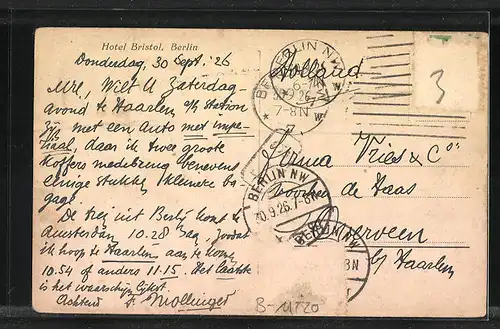 Hotel Bristol, Berlin
Donderdag, 30 Sept. '26
Mre, Wilt U Zaterdag-
avond te Haarlem a/h station
zijn met een Auto met impe-
riaal, daar ik twee groote
koffers medebreng benevens
eenige stukken kleinere ba-
gage.
De trein uit Berlijn komt te
Amsterdam 10.28 aan, zoodat
ik hoop te Haarlem aan te komen
10.54 of anders 11.15. Het laatste
is het waarschijnlijkst.
Achtend F. Mollinger
Holland
Firma Vries & Co
voorheen de Haas
Overveen
bij Haarlem
BERLIN NW
7-8N
BERLIN NW
30.9.26.7-8N
BERLIN NW
3
B-11720